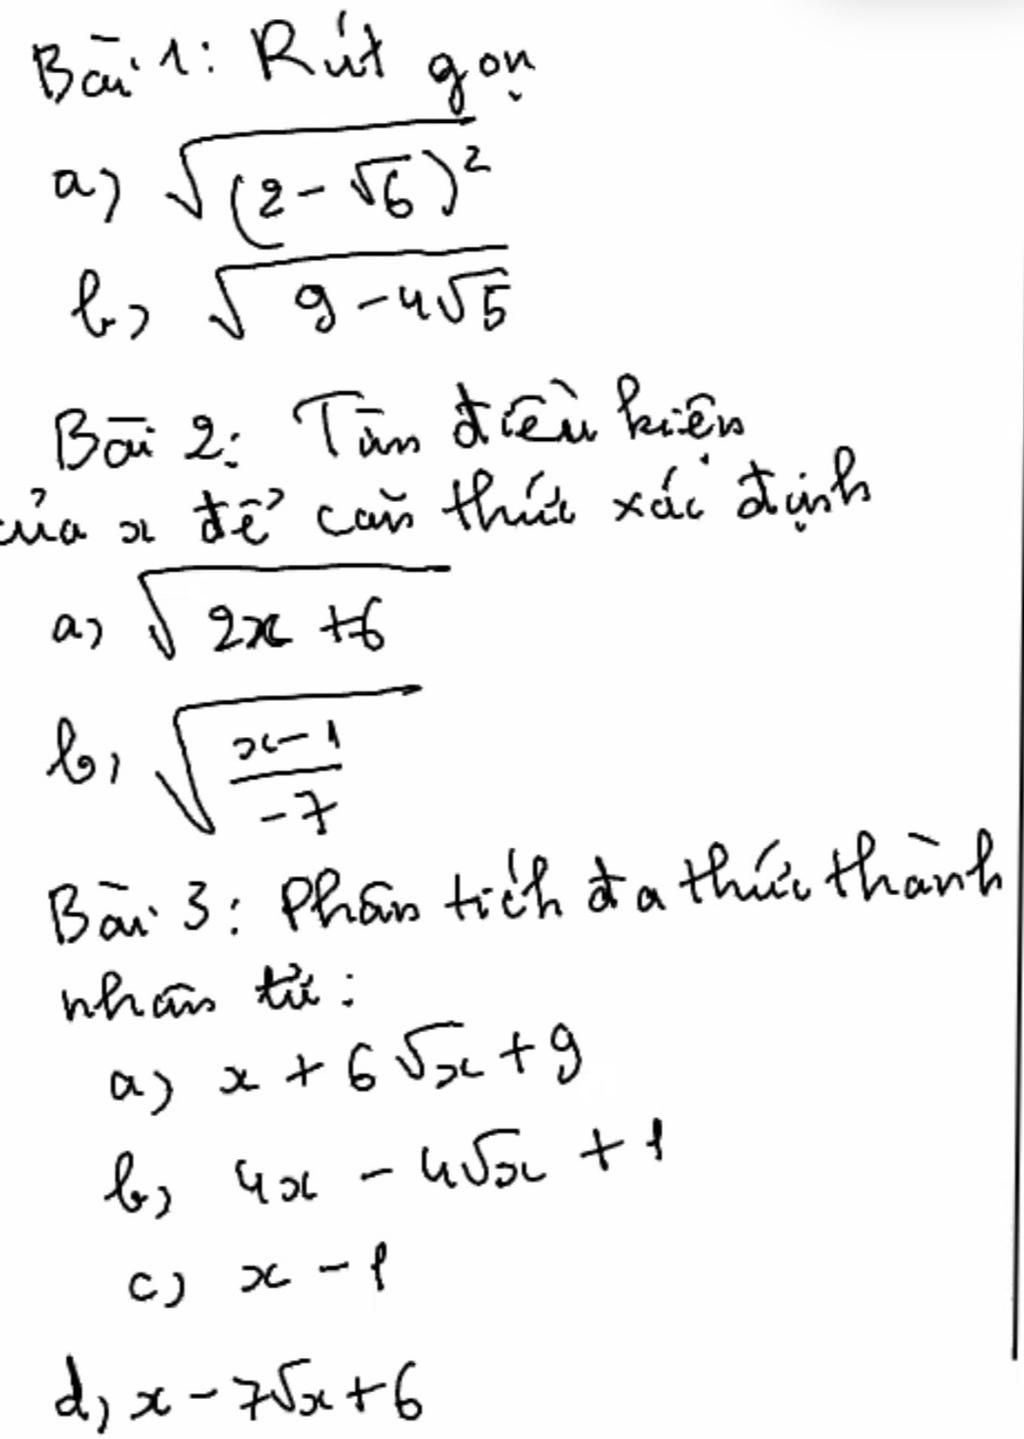 Bài 1: Rút gọn
a) √(2-√6)²
b) √9-4√5
Bài 2: Tìm điều kiện
của x để căn thức xác định
a) √2x+6
b) √x-1/-7
Bài 3: Phân tích đa thức thành
nhân tử:
a) x+6√x+9
b) 4x-4√x+1
c) x-1
d) x-7√x+6